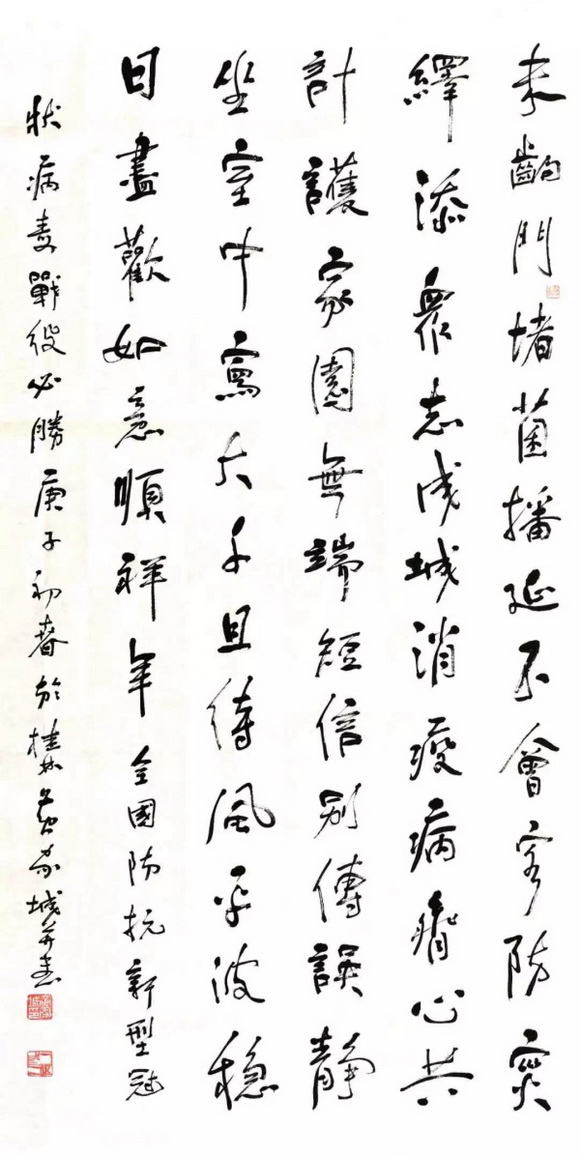 未齣門堵菌播延不會客防災
繹添衆志成城消疫病心共
計護家園無端短信別傳誤靜
坐室中寫大千且待風平波穩
日盡歡如意順祥年全國防抗新型冠
狀病毒戰役必勝庚子初春於桂林黃家城并書